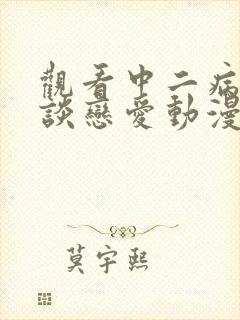 觀看中二病
談戀愛動漫
莫宇熙